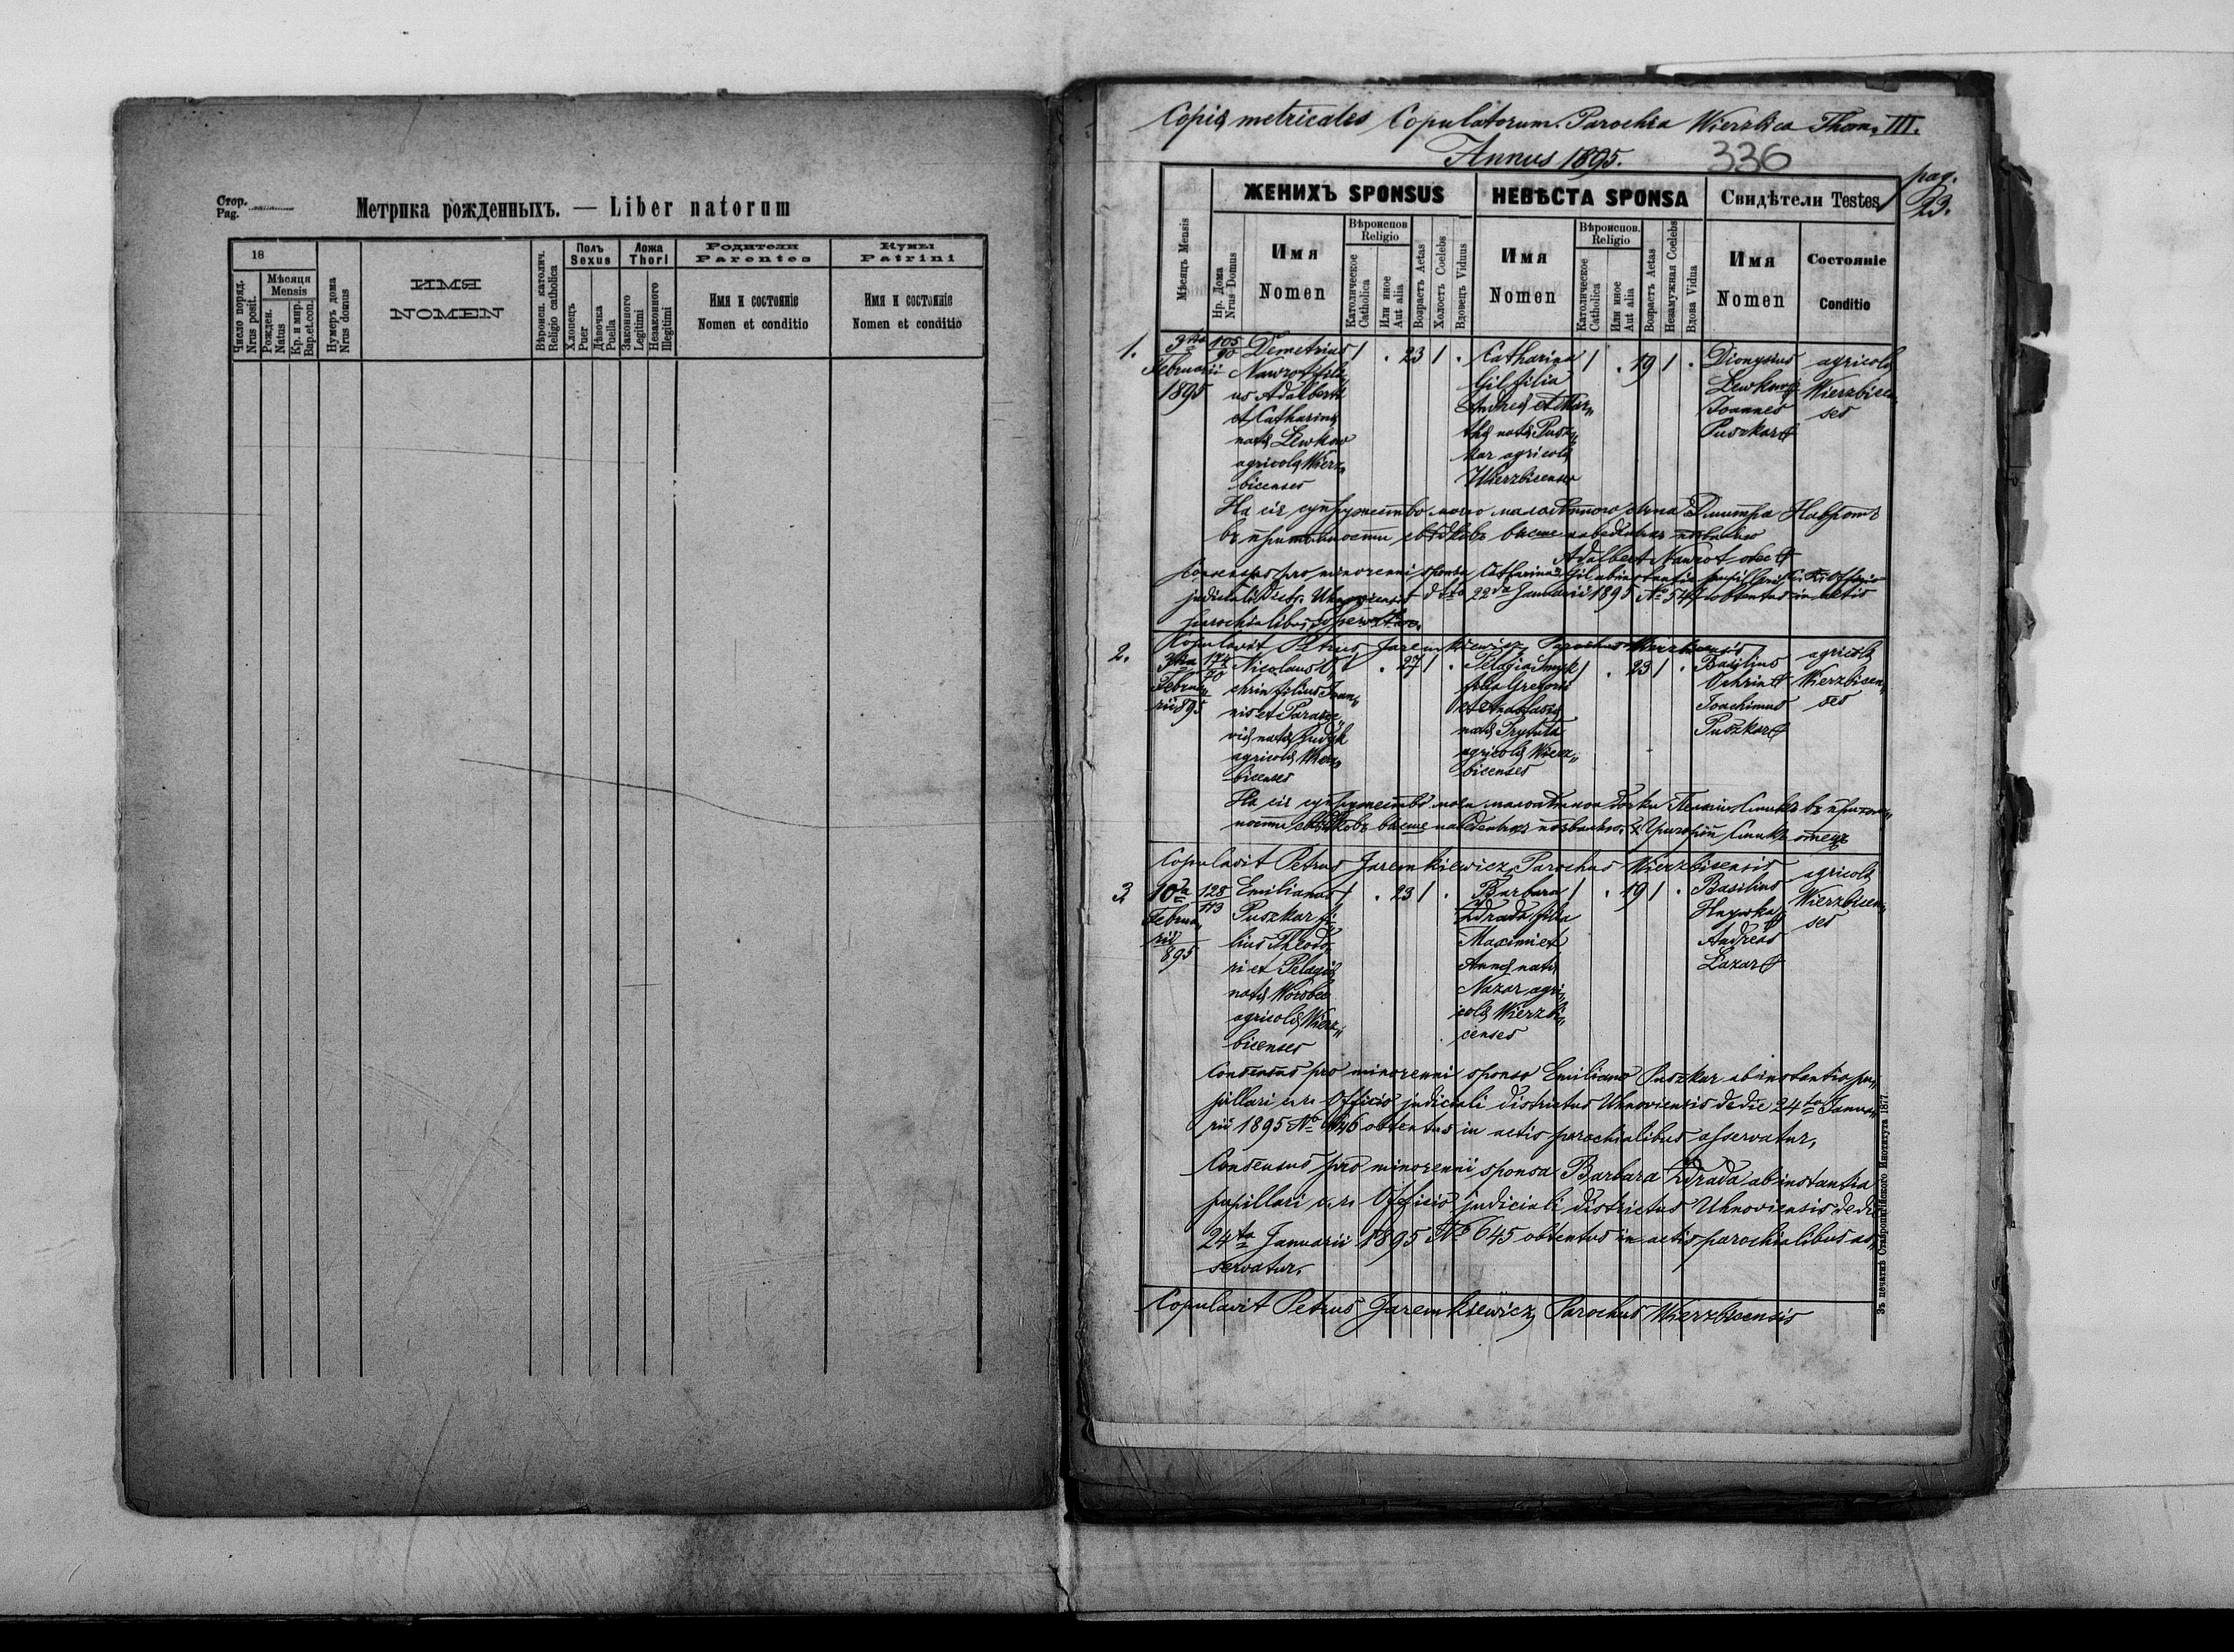 Стор.
Pag.
Метрика рожденныхъ. — Liber natorum
18
Мѣсяця
Mensis
Число поряд.
Nrus posit.
Рожден.
Natus
Кр. и мир.
Bap.et.con.
Нумеръ дома
Nrus domus
ИМЯ
NOMEN
Вѣроисп. католич.
Religio catholica
Полъ
Sexus
Хлопець
Puer
Дѣвочка
Puella
Ложа
Thori
Законного
Legitimi
Незаконного
Illegitimi
Родители
Parentes
Имя и состояніе
Nomen et conditio
Кумы
Patrini
Имя и состояніе
Nomen et conditio
Copia metricales Copulatorum. Parochia Wierzbica Thom. III.
Annus 1895.
336
pag.
23.
ЖЕНИХЪ SPONSUS
НЕВѢСТА SPONSA
Свидѣтели Testes
Мѣсяцъ Mensis
Нр. Дома
Nrus Domus
Имя
Nomen
Вѣроиспов
Religio
Католическое
Catholica
Или иное
Aut alia
Возрастъ Aetas
Холостъ Coelebs
Вдовецъ Viduus
Имя
Nomen
Вѣроиспов.
Religio
Католическое
Catholica
Или иное
Aut alia
Возрастъ Aetas
Незамужная Coelebs
Вдова Vidua
Имя
Nomen
Состояніе
Conditio
1.
3tia
Februarii
1895
105
90
Demetrius
Nawrot fili„
us Adalberti
et Catharina
nata Lewkow
agricola Wierz„
bicenses
1 . 23 1 .
Catharina
Gil filia
Andrea et Mar„
tha nata Pusz„
kar agricola
Wierzbicenses
1 . 19 1 .
Dionysius
Lewkow
Joannes
Puszkar
agricola
Wierzbicen„
ses
На сіе супружество мого малолѣтного сына Дмитра Навротъ
въ притомности свѣдковъ высше наведенных позваляю
Adalbert Nawrot otec
Consensus pro minorenni sponsa Catharina Gil ab instantia pupillari Officio
judiciali Distr. Uhnoviensis ddto 22da Januarii 1895 No 547 obtentus in actis
parochialibus asservatur.
Copulavit Petrus Jaremkiewicz Parochus Wierzbicensis
2.
3tia
Februa„
rii 895
174
70
Nicolaus O„
chrin filius Joan„
nis et Parasce„
via nata Dudyk
agricola Wierz„
bicenses
1 . 27 1 .
Pelagia Smyk
filia Gregorii
et Anastasia
nata Prytula
agricola Wierz„
bicenses
1 . 23 1 .
Basilius
Ochrin
Joachimus
Puszkar
agricola
Wierzbicen„
ses
На сіе супружество моеи малолѣтнои дочки Пелагіи Смыкъ въ притом„
ности свѣдковъ высше наведенных позваляю. Григорій Смыкъ отецъ
Copulavit Petrus Jaremkiewicz Parochus Wierzbicensis
3
10ma
Februa„
rii
895
128
113
Emilianus
Puszkar fi„
lius Theodo„
ri et Pelagia
nata Worobec
agricola Wierz„
bicenses
1 . 23 1 .
Barbara
Zdrada filia
Maximi et
Anna nata
Nazar agri„
cola Wierzbi„
censes
1 . 19 1 .
Basilius
Andreas
Lazar
agricola
Wierzbicen„
ses
Consensus pro minorenni sponso Emiliano Puszkar ab instantia pu„
pillari c. r. Officio judiciali districtus Uhnoviensis de die 24ta Janua„
rii 1895 No 646 obtentus in actis parochialibus asservatur,
Consensus pro minorenni sponsa Barbara Zdrada ab instantia
pupillari c. r. Officio judiciali districtus Uhnoviensis de die
24ta Januarii 1895 No 645 obtentus in actis parochialibus as„
servatur.
Copulavit Petrus Jaremkiewicz Parochus Wierzbicensis
Зъ печатнѣ Ставропигійского Института 1877.